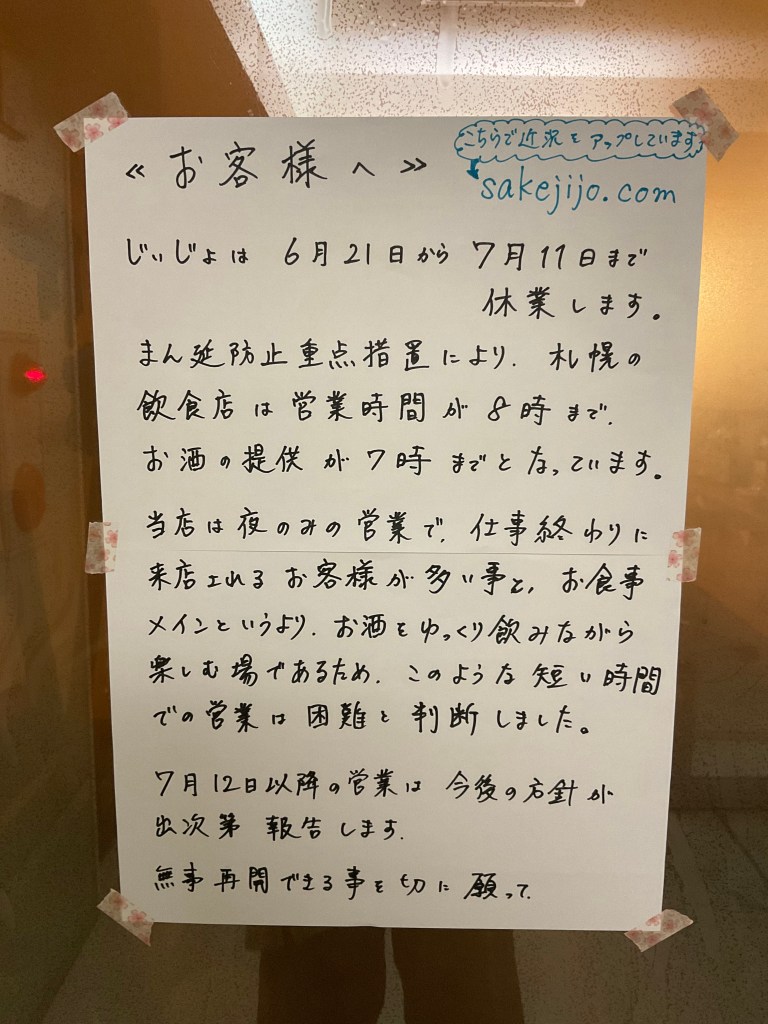 ≪お客様へ≫
こちらで近況をアップしています
sakejijo.com
じぃじょは 6月21日から 7月11日まで
休業します。
まん延防止重点措置により、札幌の
飲食店は営業時間が8時まで、
お酒の提供が7時までとなっています。
当店は夜のみの営業で、仕事終わりに
来店されるお客様が多い事と、お食事
メインというより、お酒をゆっくり飲みながら
楽しむ場であるため、このような短い時間
での営業は困難と判断しました。
7月12日以降の営業は今後の方針が
出次第報告します。
無事再開できる事を切に願って、